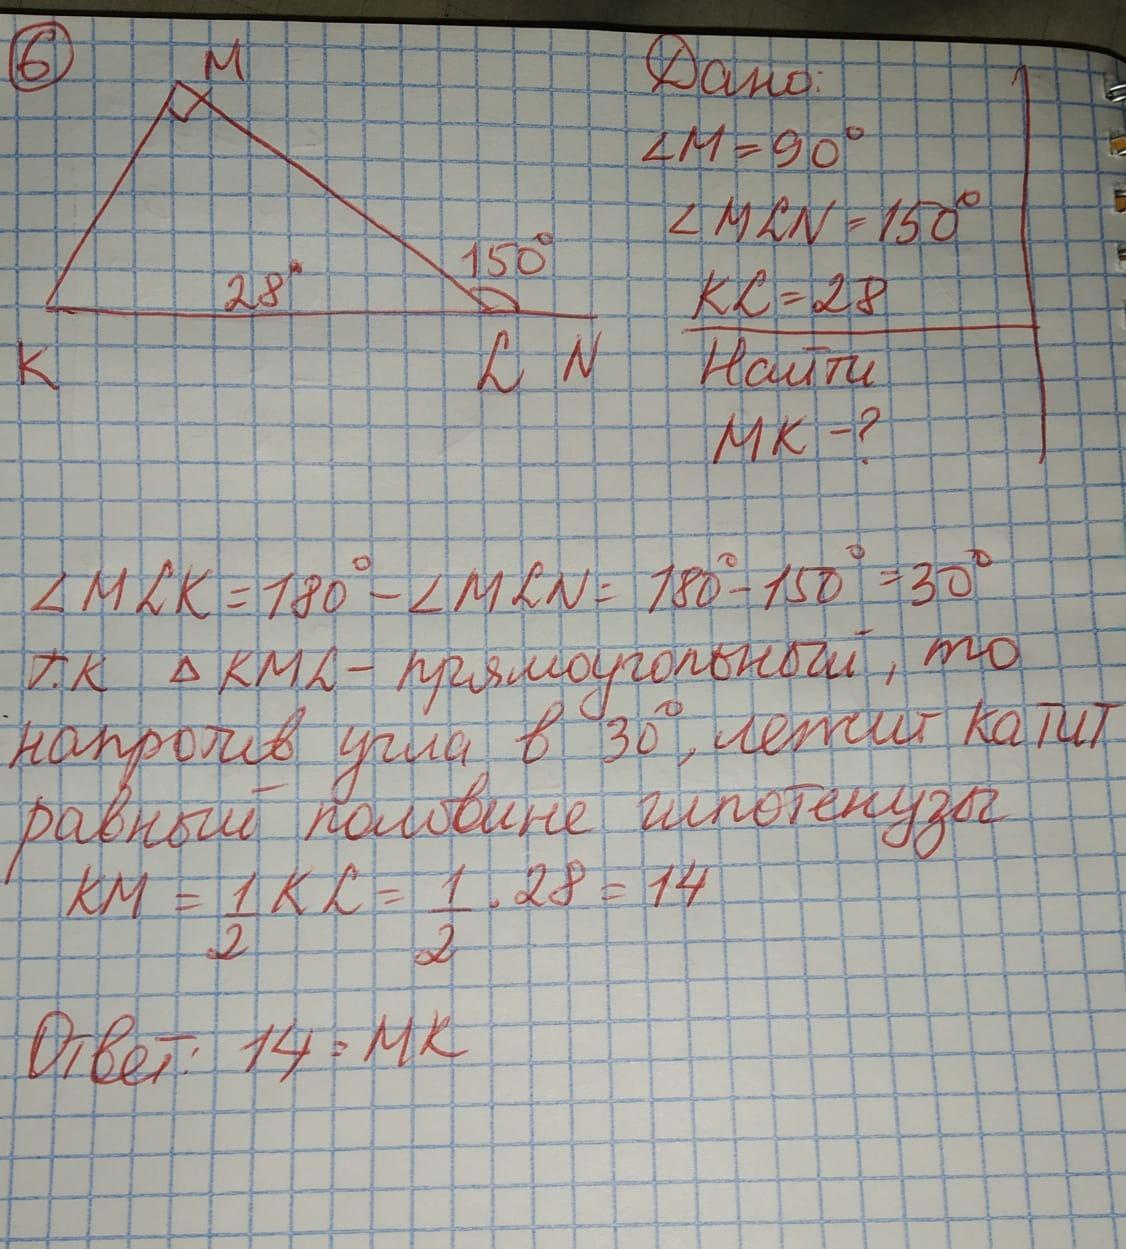 6
M
28°
150°
K
L N
Дано:
∠M = 90°
∠MLN = 150°
KL = 28
Найти
MK - ?
∠MLK = 180° - ∠MLN = 180° - 150° = 30°
т.к △ KML - прямоугольный, то
напротив угла в 30°, лежит катит
равный половине гипотенузы
KM = 1/2 KL = 1/2 · 28 = 14
Ответ: 14 = MK